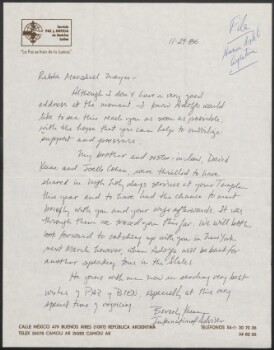 Servicio
PAZ Y JUSTICIA
en América
Latina
"La Paz es fruto de la Justicia"
11-29-86
File
Human Rights
Argentina
Rabbi Marshall Meyer-
Although I don't have a very good
address at the moment, I know Adolfo would
like to see this reach you as soon as possible,
with the hope that you can help to
support and pressure.
My brother and sister-in-law, David
Keene and Joelle Cohen, were thrilled to have
shared in High Holy days services at your Temple
this year and to have had the chance to meet
briefly with you and your wife afterwards. It was
through them we heard you thus far. We will both
look forward to catching up with you in New York
next March, however, when Adolfo will be back for
another speaking tour in the States.
He joins with me now in sending very best
wishes of PAZ y BIEN, especially at this very
special time of rejoicing.
Beverly Keene
International Adviser
CALLE MÉXICO 479 BUENOS AIRES (1097) REPÚBLICA ARGENTINA
TELEX CAMOU AR CAMOU AR
TELÉFONOS